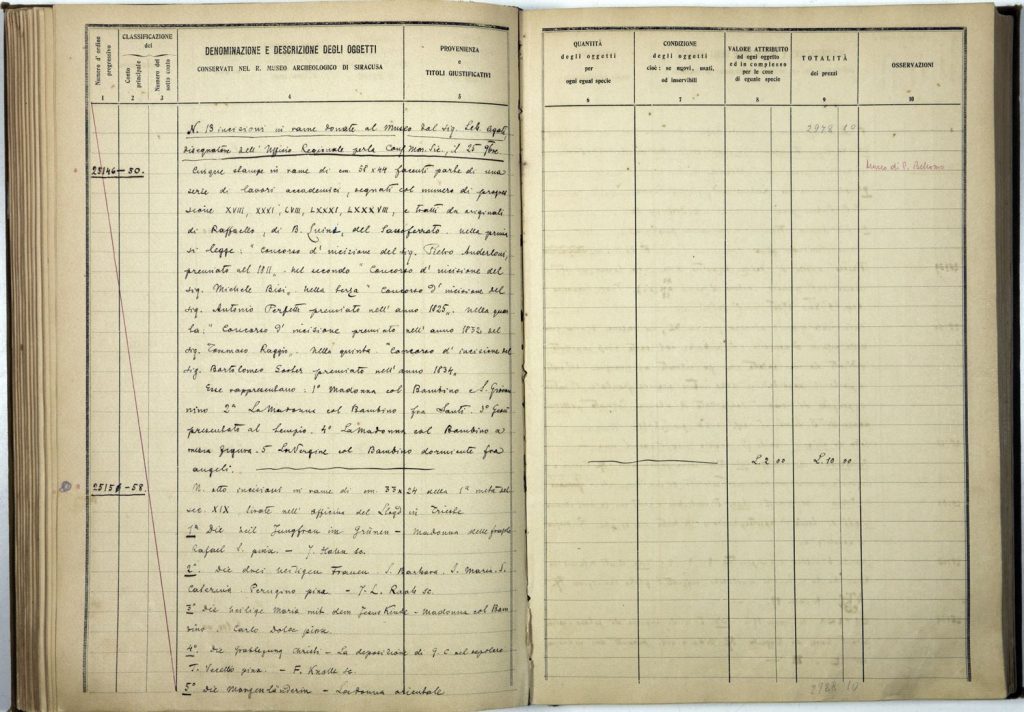 Numero d'ordine progressivo
CLASSIFICAZIONE
del
Conto principale
Numero del sotto conto
DENOMINAZIONE E DESCRIZIONE DEGLI OGGETTI
CONSERVATI NEL R. MUSEO ARCHEOLOGICO DI SIRACUSA
PROVENIENZA
e
TITOLI GIUSTIFICATIVI
1 2 3 4 5
N. 13 incisioni in rame donate al Museo dal sig. Seb. Agati,
disegnatore dell'Ufficio Regionale per la Cons. Mon. Sic., il 25 9bre.
25146-50.
Cinque stampe in rame di cm. 58 x 44 facente parte di una
serie di lavori accademici, segnati col numero di progres
sione XVIII, XXXI, LVIII, LXXXI, LXXXVIII, e tratti da originali
di Raffaello, di B. Luini, del Sassoferrato. Nella prima
si legge: "Concorso d'incisione del sig. Pietro Anderloni,
premiato nel 1811". Nel secondo "Concorso d'incisione del
sig. Michele Bisi". Nella terza "Concorso d'incisione del
sig. Antonio Perfetti premiato nell'anno 1825". Nella quar
ta: "Concorso d'incisione premiato nell'anno 1832 del
sig. Tommaso Raggio". Nella quinta "Concorso d'incisione del
sig. Bartolomeo Soster premiato nell'anno 1834".
Esse rappresentano: 1° Madonna col Bambino e S. Giovan
nino 2ª La Madonna col Bambino fra Santi. 3° Gesù
presentato al tempio. 4° La Madonna col Bambino a
mezza figura. 5 La Vergine col Bambino dormiente fra
angeli.
25151-58.
N. otto incisioni in rame di cm. 33 x 24 della 1ª metà del
sec. XIX tirate nell'officina del Lloyd in Trieste
1ª Die heil Jungfrau im Grünen - Madonna delle fragole
Rafael S. pinx. - J. sc.
2ª. Die drei heiligen Frauen. S. Barbara. S. Maria. S.
Caterina. Perugino pinx - J. L. Raab sc.
3ª Die heilige Maria mit dem Jesus Kinde - Madonna col Bam
bino Carlo Dolce pinx.
4ª. Die Grablegung Christi - La deposizione di G. C nel sepolcro
T. pinx. - F. Knolle sc.
5ª Die Morgenländerin - La donna orientale
QUANTITÀ
degli oggetti
per
ogni egual specie
CONDIZIONE
degli oggetti
cioè: se nuovi, usati,
od inservibili
VALORE ATTRIBUITO
ad ogni oggetto
ed in complesso
per le cose
di eguale specie
TOTALITÀ
dei prezzi
OSSERVAZIONI
6 7 8 9 10
2978 10
Museo di P. Bellomo
L. 2 00 L. 10 00
2988 10